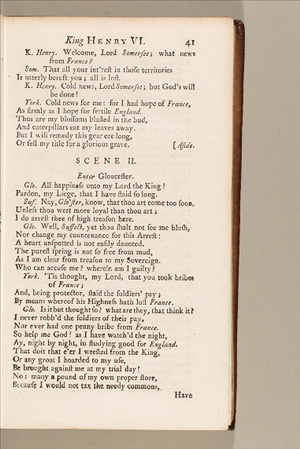 King HENRY VI. 41
K. Henry. Welcome, Lord Somerset; what news
from France?
Som. That all your int'rest in those territories
Is utterly bereft you; all is lost.
K. Henry. Cold news, Lord Somerset; but God's will
be done!
York. Cold news for me: for I had hope of France,
As firmly as I hope for fertile England.
Thus are my blossoms blasted in the bud,
And caterpillars eat my leaves away.
But I will remedy this gear ere long,
Or sell my title for a glorious grave. [Aside.
SCENE II.
Enter Gloucester.
Glo. All happiness unto my Lord the King!
Pardon, my Liege, that I have staid so long.
Suf. Nay, Glo'ster, know, that thou art come too soon,
Unless thou wert more loyal than thou art;
I do arrest thee of high treason here.
Glo. Well, Suffolk, yet thou shalt not see me blush,
Nor change my countenance for this Arrest:
A heart unspotted is not easily daunted.
The purest spring is not so free from mud,
As I am clear from treason to my Sovereign.
Who can accuse me? wherein am I guilty?
York. 'Tis thought, my Lord, that you took bribes
of France;
And, being protector, staid the soldiers' pay;
By means whereof his Highness hath lost France.
Glo. Is it but thought so? what are they, that think it?
I never robb'd the soldiers of their pay,
Nor ever had one penny bribe from France.
So help me God! as I have watch'd the night,
Ay, night by night, in studying good for England.
That doit that e'er I wrested from the King,
Or any groat I hoarded to my use,
Be brought against me at my trial day!
No; many a pound of my own proper store,
Because I would not tax the needy commons,
Have